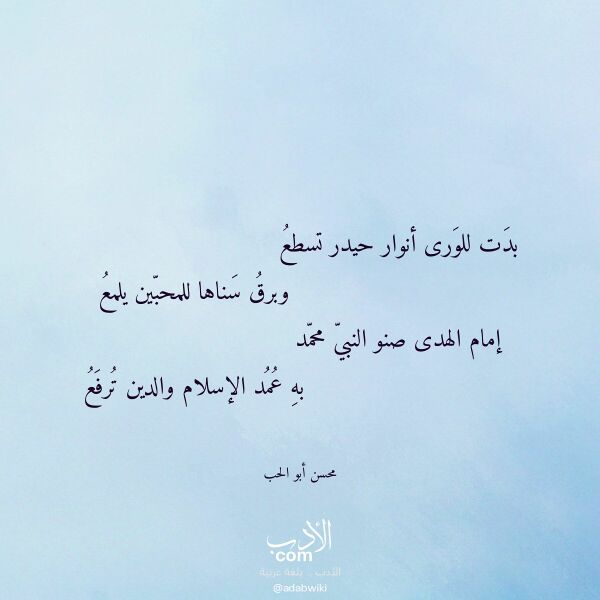 بدَت للوَرى أنوار حيدر تسطعُ
وبرقُ سَناها للمحبّين يلمعُ
إمام الهدى صنو النبيّ محمّد
بهِ عُمُد الإسلام والدين تُرفَعُ
محسن أبو الحب
الأدب
com
الأدب .. بلغة عربية
@adabwiki